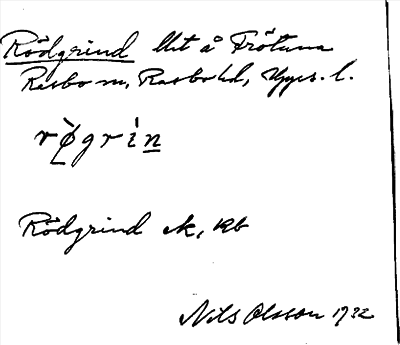 Rödgrind llt å Frötuna
Rasbo sn, Rasbo hd, Upps. l.
rø̀grìn
Rödgrind ek, kb
Nils Olsson 1932